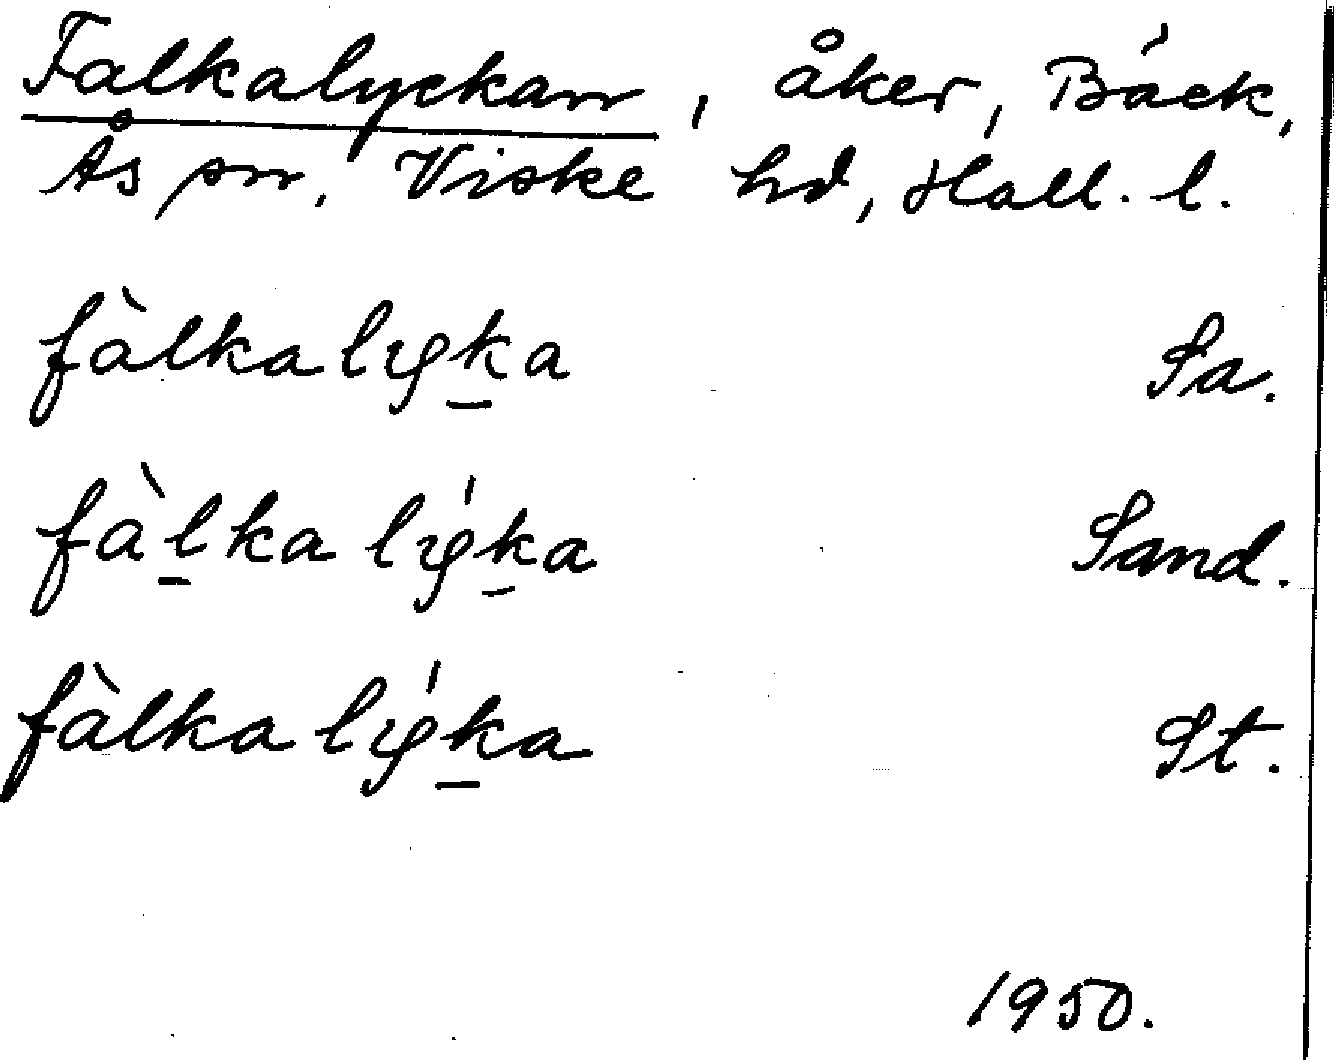 Falkalyckan, åker, Bäck,
Ås sn, Viske hd, Hall. l.
fàlkalyka Sa.
fàlkalýka Sand.
fàlkalýka St.
1950.